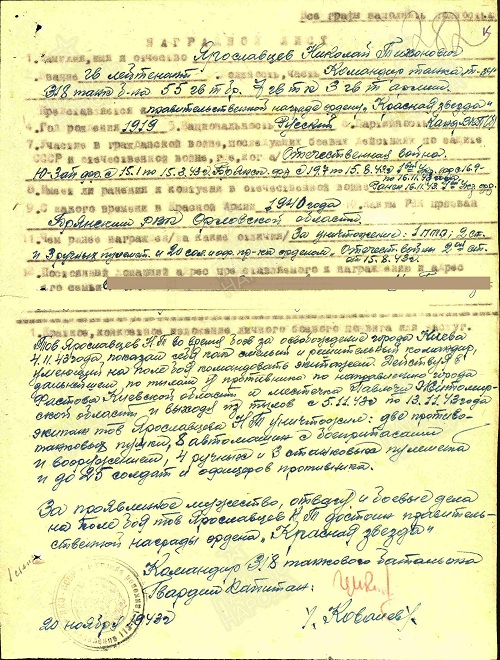 Все графы заполнять полностью
НАГРАДНОЙ ЛИСТ
1. Фамилия, имя и отчество Ярославцев Николай Тихонович
Звание гв лейтенант должность, часть Командир танка Т-34
318 танк б-на 55 гв т бр. 7 гв т к 3 гв т армии.
Представляется к правительственной награде ордену „Красная звезда"
4. Год рождения 1919 5. Национальность Русский 6. Партийность Канд. ВКП(б)
7. Участие в гражданской войне, последующих боевых действиях по защите
СССР и отечественной войне, где, когда Отечественная война.
Ю-Зап фр с 15.1 по 15.8.43г Брянск. фр с 19.7 по 15.8.43г 1й Укр. фр с 16.9-
по 16.11.43 года
8. Имеет ли ранения и контузии в отечественной войне Ранен 16.11.43г 1й Укр фр
9. С какого времени в Красной Армии 1940 года
10. Каким РВК призван
Брянским РВК Орловской области.
11. Чем ранее награжден /за какие отличия/ За уничтожение: 1 ПТО;
и 3 ручных пулемет. и 20 сол. и оф. пр-ка орденом „Отечест. войны 2й ст.
от 15.8.43г.
12. Постоянный домашний адрес представляемого к награждению и адрес
его семьи
1. Краткое, конкретное изложение личного боевого подвига или заслуг.
Тов Ярославцев Н.Т во время боев за освобождение города Киева
4.11.43 года, показал себя как смелый и решительный командир,
умеющий на поле боя командовать экипажем. Действуя в
дальнейшем, по тылам у противника по направлению города
Фастова Киевской области и местечка Паволочь Житомир-
ской области и выходя из тылов с 5.11.43г по 13.11.43 года
экипаж тов Ярославцева Н Т уничтожил: две противо-
танковых пушки, 8 автомашин с боеприпасами
и вооружением, 4 ручных и 3 станковых пулемета
и до 25 солдат и офицеров противника.
За проявленное мужество, отвагу и боевые дела
на поле боя тов Ярославцев Н.Т достоин правитель-
ственной награды ордена „Красная звезда"
Командир 318 танкового батальона
Гвардии Капитан:
/. Ковалев /.
20 ноября 1943г